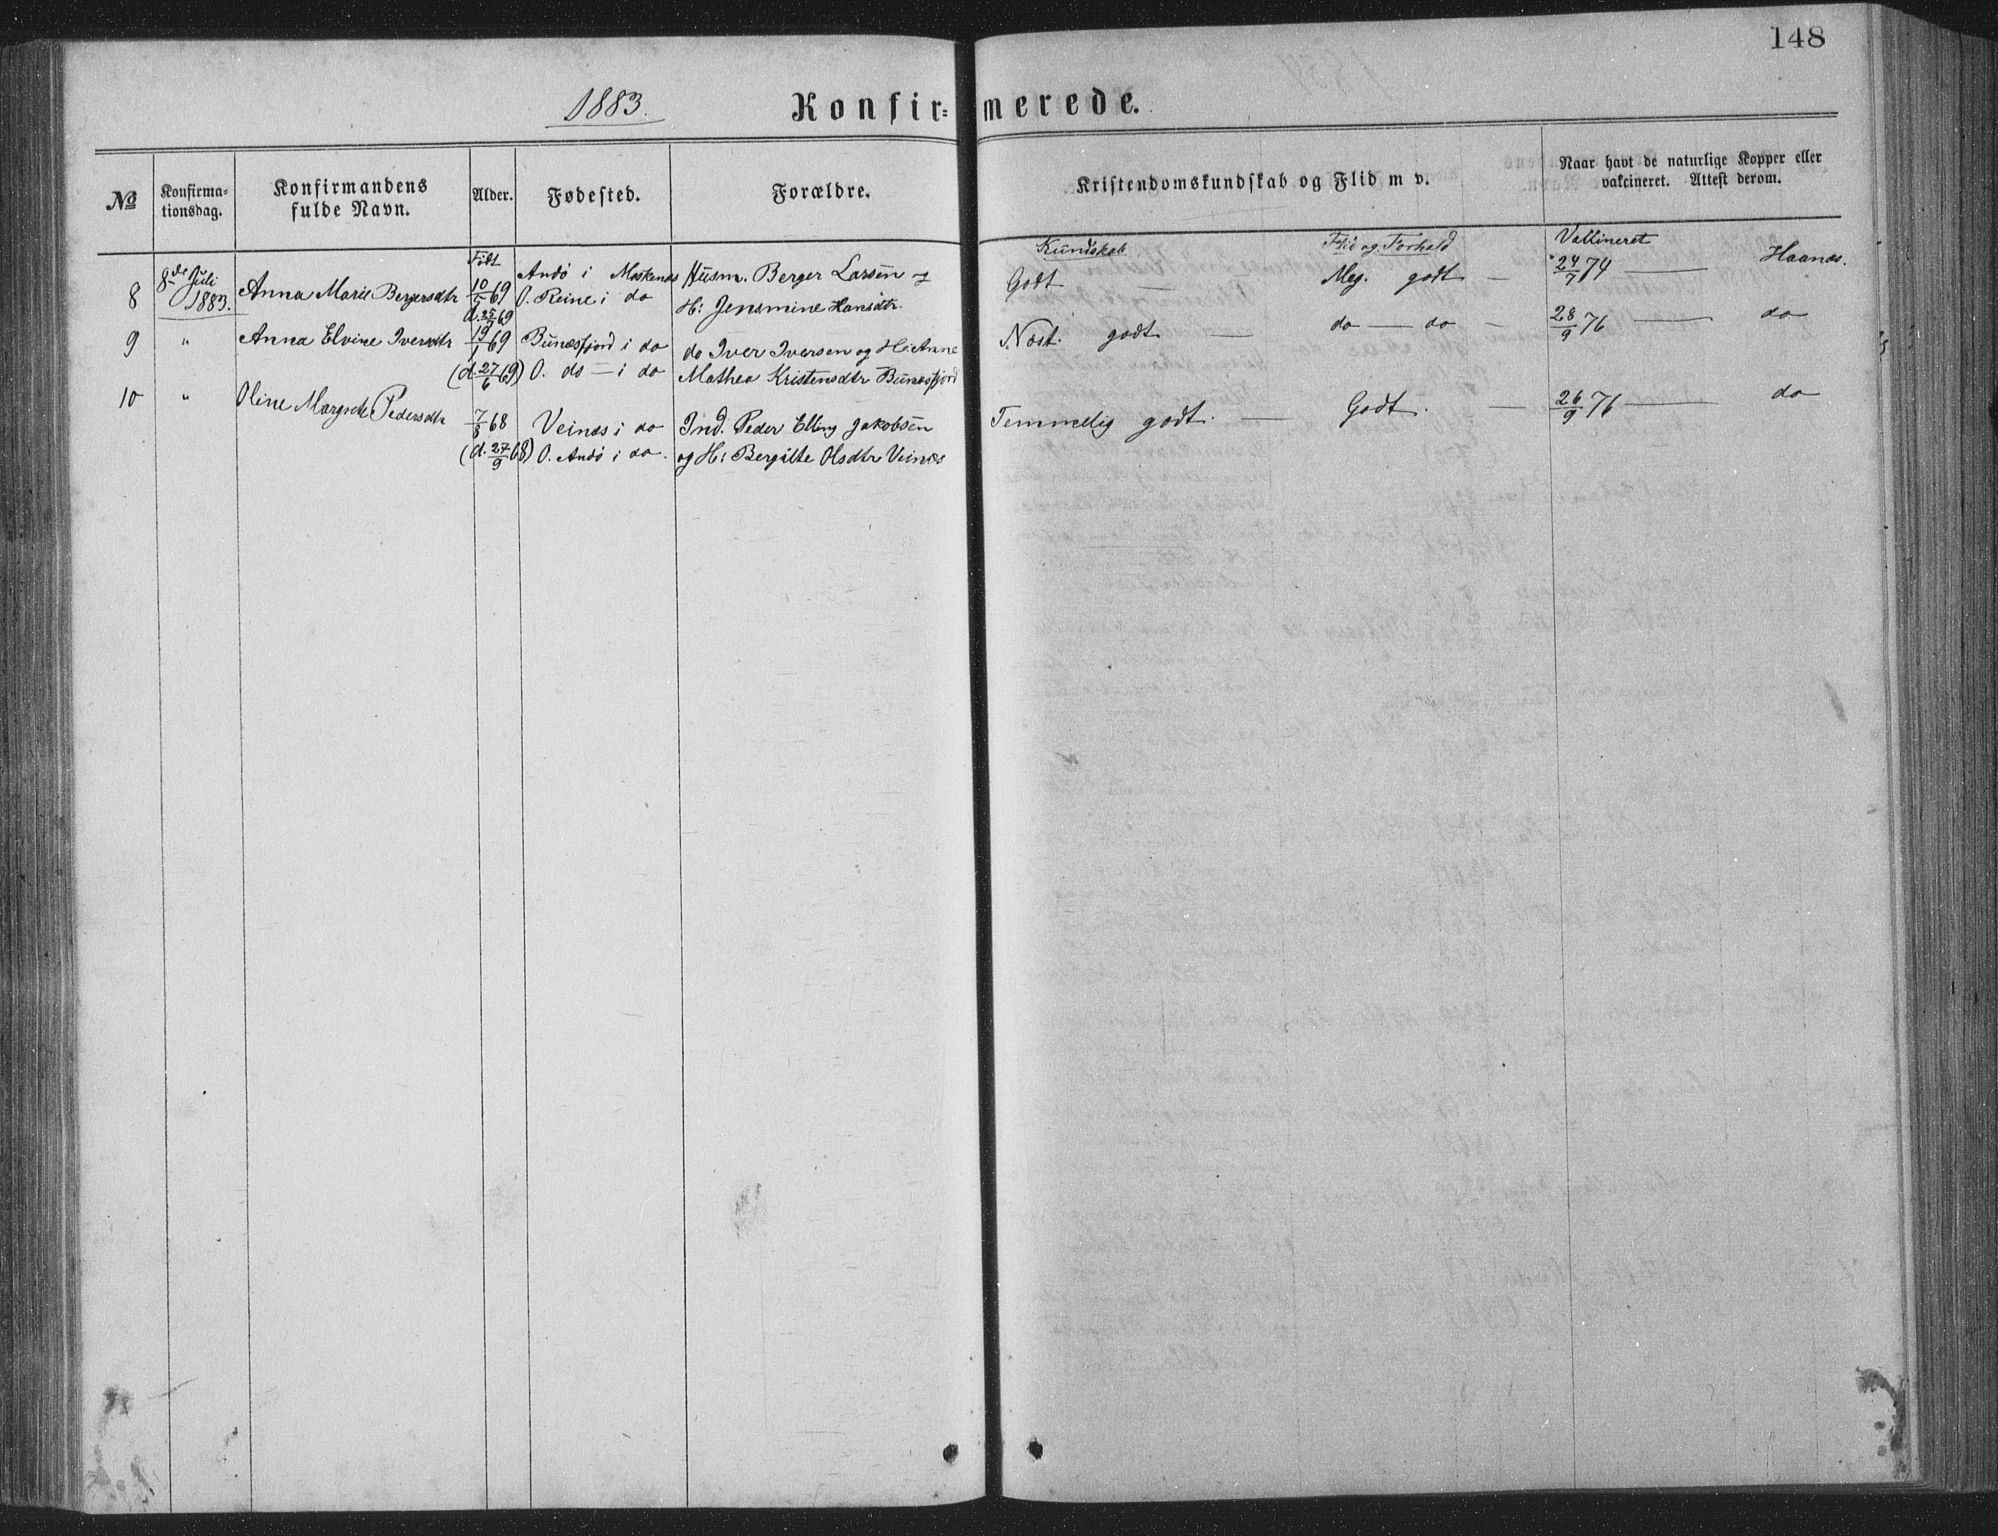 148
1883. Konfir= merede.
№ Konfirma-tionsdag. Konfirmandens fulde Navn. Alder. Fødested. Forældre. Kristendomskundskab og Flid m v. Naar havt de naturlige Kopper eller vakcineret. Attest derom.
Født Kundskab Flid og Forhold Vaccineret
8 8de Juli 1883. Anna Marie Bergersdtr 10/5 69 Andø i Moskenæs Husm. Berger Larsen og Godt — Meg. godt — 24/7 74 — Haanæs.
d. 25/5 69 O. Reine i do H: Jensmine Hansdtr.
9 " Anna Elvine Iversdtr 19/1 69 Bunæsfjord i do do Iver Iversen og H: Anne Næst. godt — do — do — 28/9 76 — do
(d. 27/6 69) O. do — i do Mathea Kristensdtr Bunæsfjord
10 " Oline Margrete Pedersdtr 7/8 68 Veinæs i do Ind. Peder Elling Jakobsen Temmelig godt. — Godt. — 26/9 76 — do
(d. 27/9 68) O. Andø i do. og H: Bergitte Olsdtr Veinæs